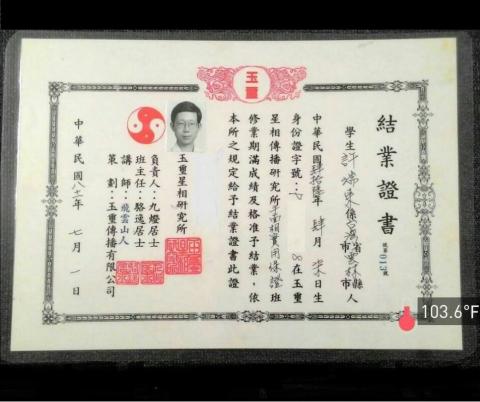 玉重
結業證書
號第013號
學生許 係台灣省雲林縣市人
中華民國肆拾陸年肆月 日生
身份證字號:
在玉重
星相傳播研究所手面相實用保證班
修業期滿成績及格准予結業,依
本所之規定給予結業證書此證
玉重星相研究所
負責人:九燈居士
班主任:駱逸居士
講師:飛雲山人
策劃:玉重傳播有限公司
中華民國八十二年七月一日
103.6°F